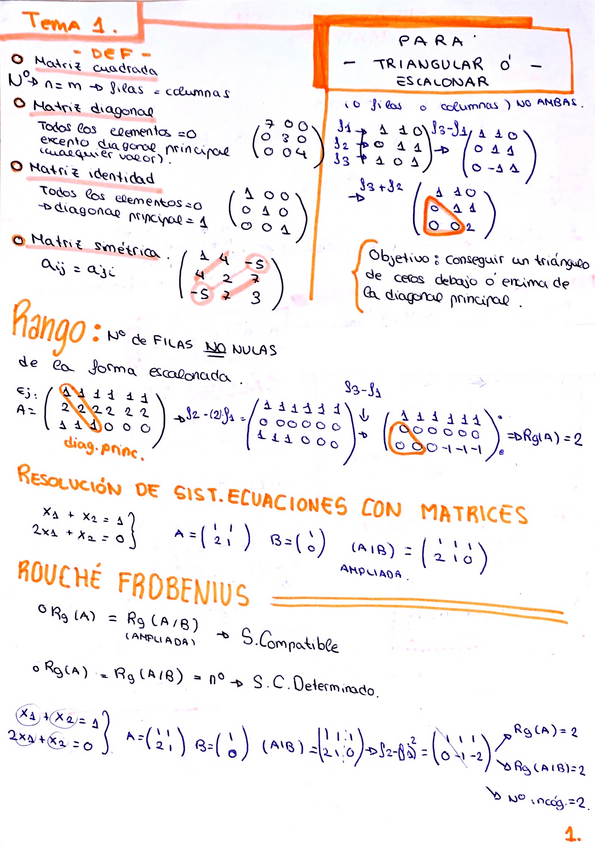 Tema 1.
- DEF -
Matriz cuadrada
Nº → n = m → filas = columnas
Matriz diagonal
Todos los elementos = 0
excepto diagonal principal
(cualquier valor).
7 0 0
0 3 0
0 0 4
Matriz identidad
Todos los elementos = 0
→ diagonal principal = 1
1 0 0
0 1 0
0 0 1
Matriz simétrica.
aij = aji
1 4 -5
4 2 7
-5 7 3
PARA
- TRIANGULAR Ó -
ESCALONAR
(o filas o columnas) NO AMBAS.
f1 → 1 1 0
f2 → 0 1 1
f3 → 1 0 1
f3-f1
→
1 1 0
0 1 1
0 -1 1
→ f3+f2
1 1 0
0 1 1
0 0 2
Objetivo: conseguir un triángulo
de ceros debajo ó encima de
la diagonal principal.
Rango: Nº de FILAS NO NULAS
de la forma escalonada.
Ej:
A=
1 1 1 1 1 1
2 2 2 2 2 2
1 1 1 0 0 0
diag. princ.
→ f2-(2)f1 =
1 1 1 1 1 1
0 0 0 0 0 0
1 1 1 0 0 0
f3-f1
↓
→
1 1 1 1 1 1
0 0 0 0 0 0
0 0 0 -1 -1 -1
⇒ Rg(A) = 2
RESOLUCIÓN DE SIST. ECUACIONES CON MATRICES
x1 + x2 = 1
2x1 + x2 = 0
A = (1 1
2 1)
B = (1
0)
(A|B) = (1 1 1
2 1 0)
AMPLIADA.
ROUCHÉ FROBENIUS
Rg(A) = Rg(A/B) → S. Compatible
(AMPLIADA)
Rg(A) = Rg(A/B) = nº → S. C. Determinado.
x1 + x2 = 1
2x1 + x2 = 0
A = (1 1
2 1)
B = (1
0)
(A|B) = (1 1 1
2 1 0)
→ f2-(f1)2 = (1 1 1
0 -1 -2)
Rg(A) = 2
Rg(A|B) = 2
Nº incóg. = 2.
1.